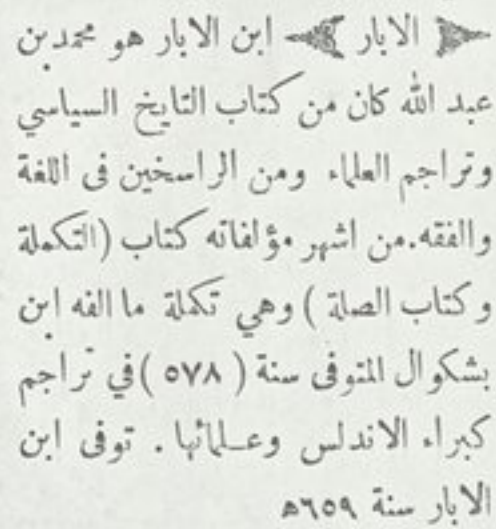 ﴿ الابار ﴾ ابن الابار هو محمد بن
عبد الله كان من كتاب التايخ السياسي
وتراجم العلماء ومن الراسخين فى اللغة
والفقه.من اشهر مؤلفاته كتاب (التكملة
وكتاب الصلة ) وهي تكملة ما الفه ابن
بشكوال المتوفى سنة ( ٥٧٨ )في تراجم
كبراء الاندلس وعلمائها . توفى ابن
الابار سنة ٦٥٩ﻫ